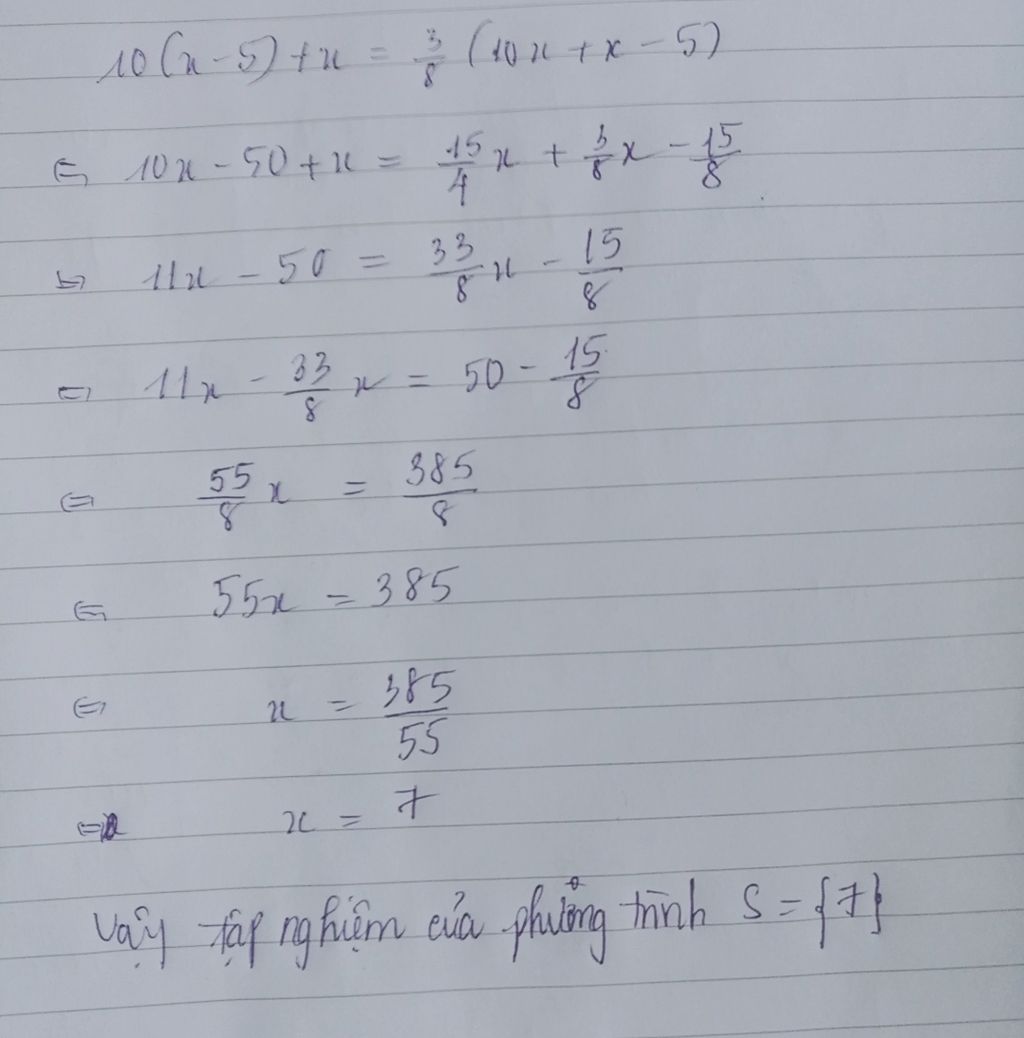 10(x-5)+x = 3/8 (10x + x - 5)
⇔ 10x - 50 + x = 15/4 x + 3/8 x - 15/8
⇔ 11x - 50 = 33/8 x - 15/8
⇔ 11x - 33/8 x = 50 - 15/8
⇔ 55/8 x = 385/8
⇔ 55x = 385
⇔ x = 385/55
⇔ x = 7
Vậy tập nghiệm của phưởng trình S = {7}